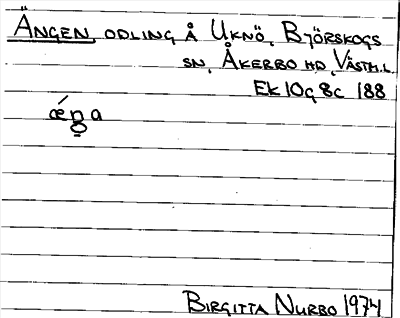 ÄNGEN, ODLING Å UKNÖ, BJÖRSKOGS
SN, ÅKERBO HD, VÄSTM.L.
EK 10G 8C 188
ǽŋa
BIRGITTA NURBO 1974